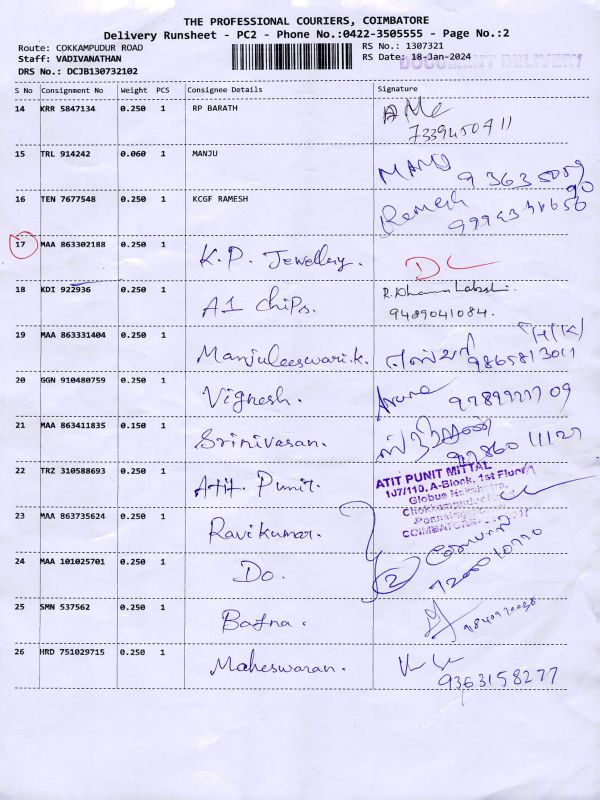 THE PROFESSIONAL COURIERS, COIMBATORE
Delivery Runsheet - PC2 - Phone No.:0422-3505555 - Page No.:2
Route: COKKAMPUDUR ROAD RS No.: 1307321
Staff: VADIVANATHAN RS Date: 18-Jan-2024
DOCUMENT DELIVERY
DRS No.: DCJB130732102
S No Consignment No Weight PCS Consignee Details Signature
14 KRR 5847134 0.250 1 RP BARATH
7339450711
15 TRL 914242 0.060 1 MANJU MANJ
16 TEN 7677548 0.250 1 KCGF RAMESH Ramesh
17 MAA 863302188 0.250 1 K.P. Jewellery. DL
18 KDI 922936 0.250 1 A1 chips.
9489041084.
19 MAA 863331404 0.250 1 Manjuleeswari.k. 9865813011
20 GGN 910480759 0.250 1 Vignesh.
21 MAA 863411835 0.150 1 Srinivasan.
22 TRZ 310588693 0.250 1 Atit. Punit. ATIT PUNIT MITTAL
107/110, A-Block, 1st Floor
Globus
COIMBATORE
23 MAA 863735624 0.250 1 Ravikumar.
24 MAA 101025701 0.250 1 Do. 2
25 SMN 537562 0.250 1 Bafna.
26 HRD 751029715 0.250 1 Maheswaran. 9363158277